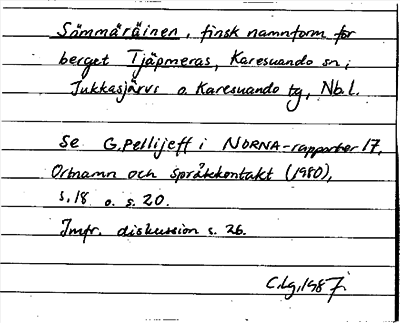 Sömmäräinen, finsk namnform för
berget Tjäpmeras, Karesuando sn,
Jukkasjärvi o. Karesuando tg, Nb.l.
Se G. Pellijeff i NORNA-rapporter 17.
Ortnamn och språkkontakt (1980),
s. 18 o. s. 20.
Jmfr. diskussion s. 26.
C.Lg. 1987.